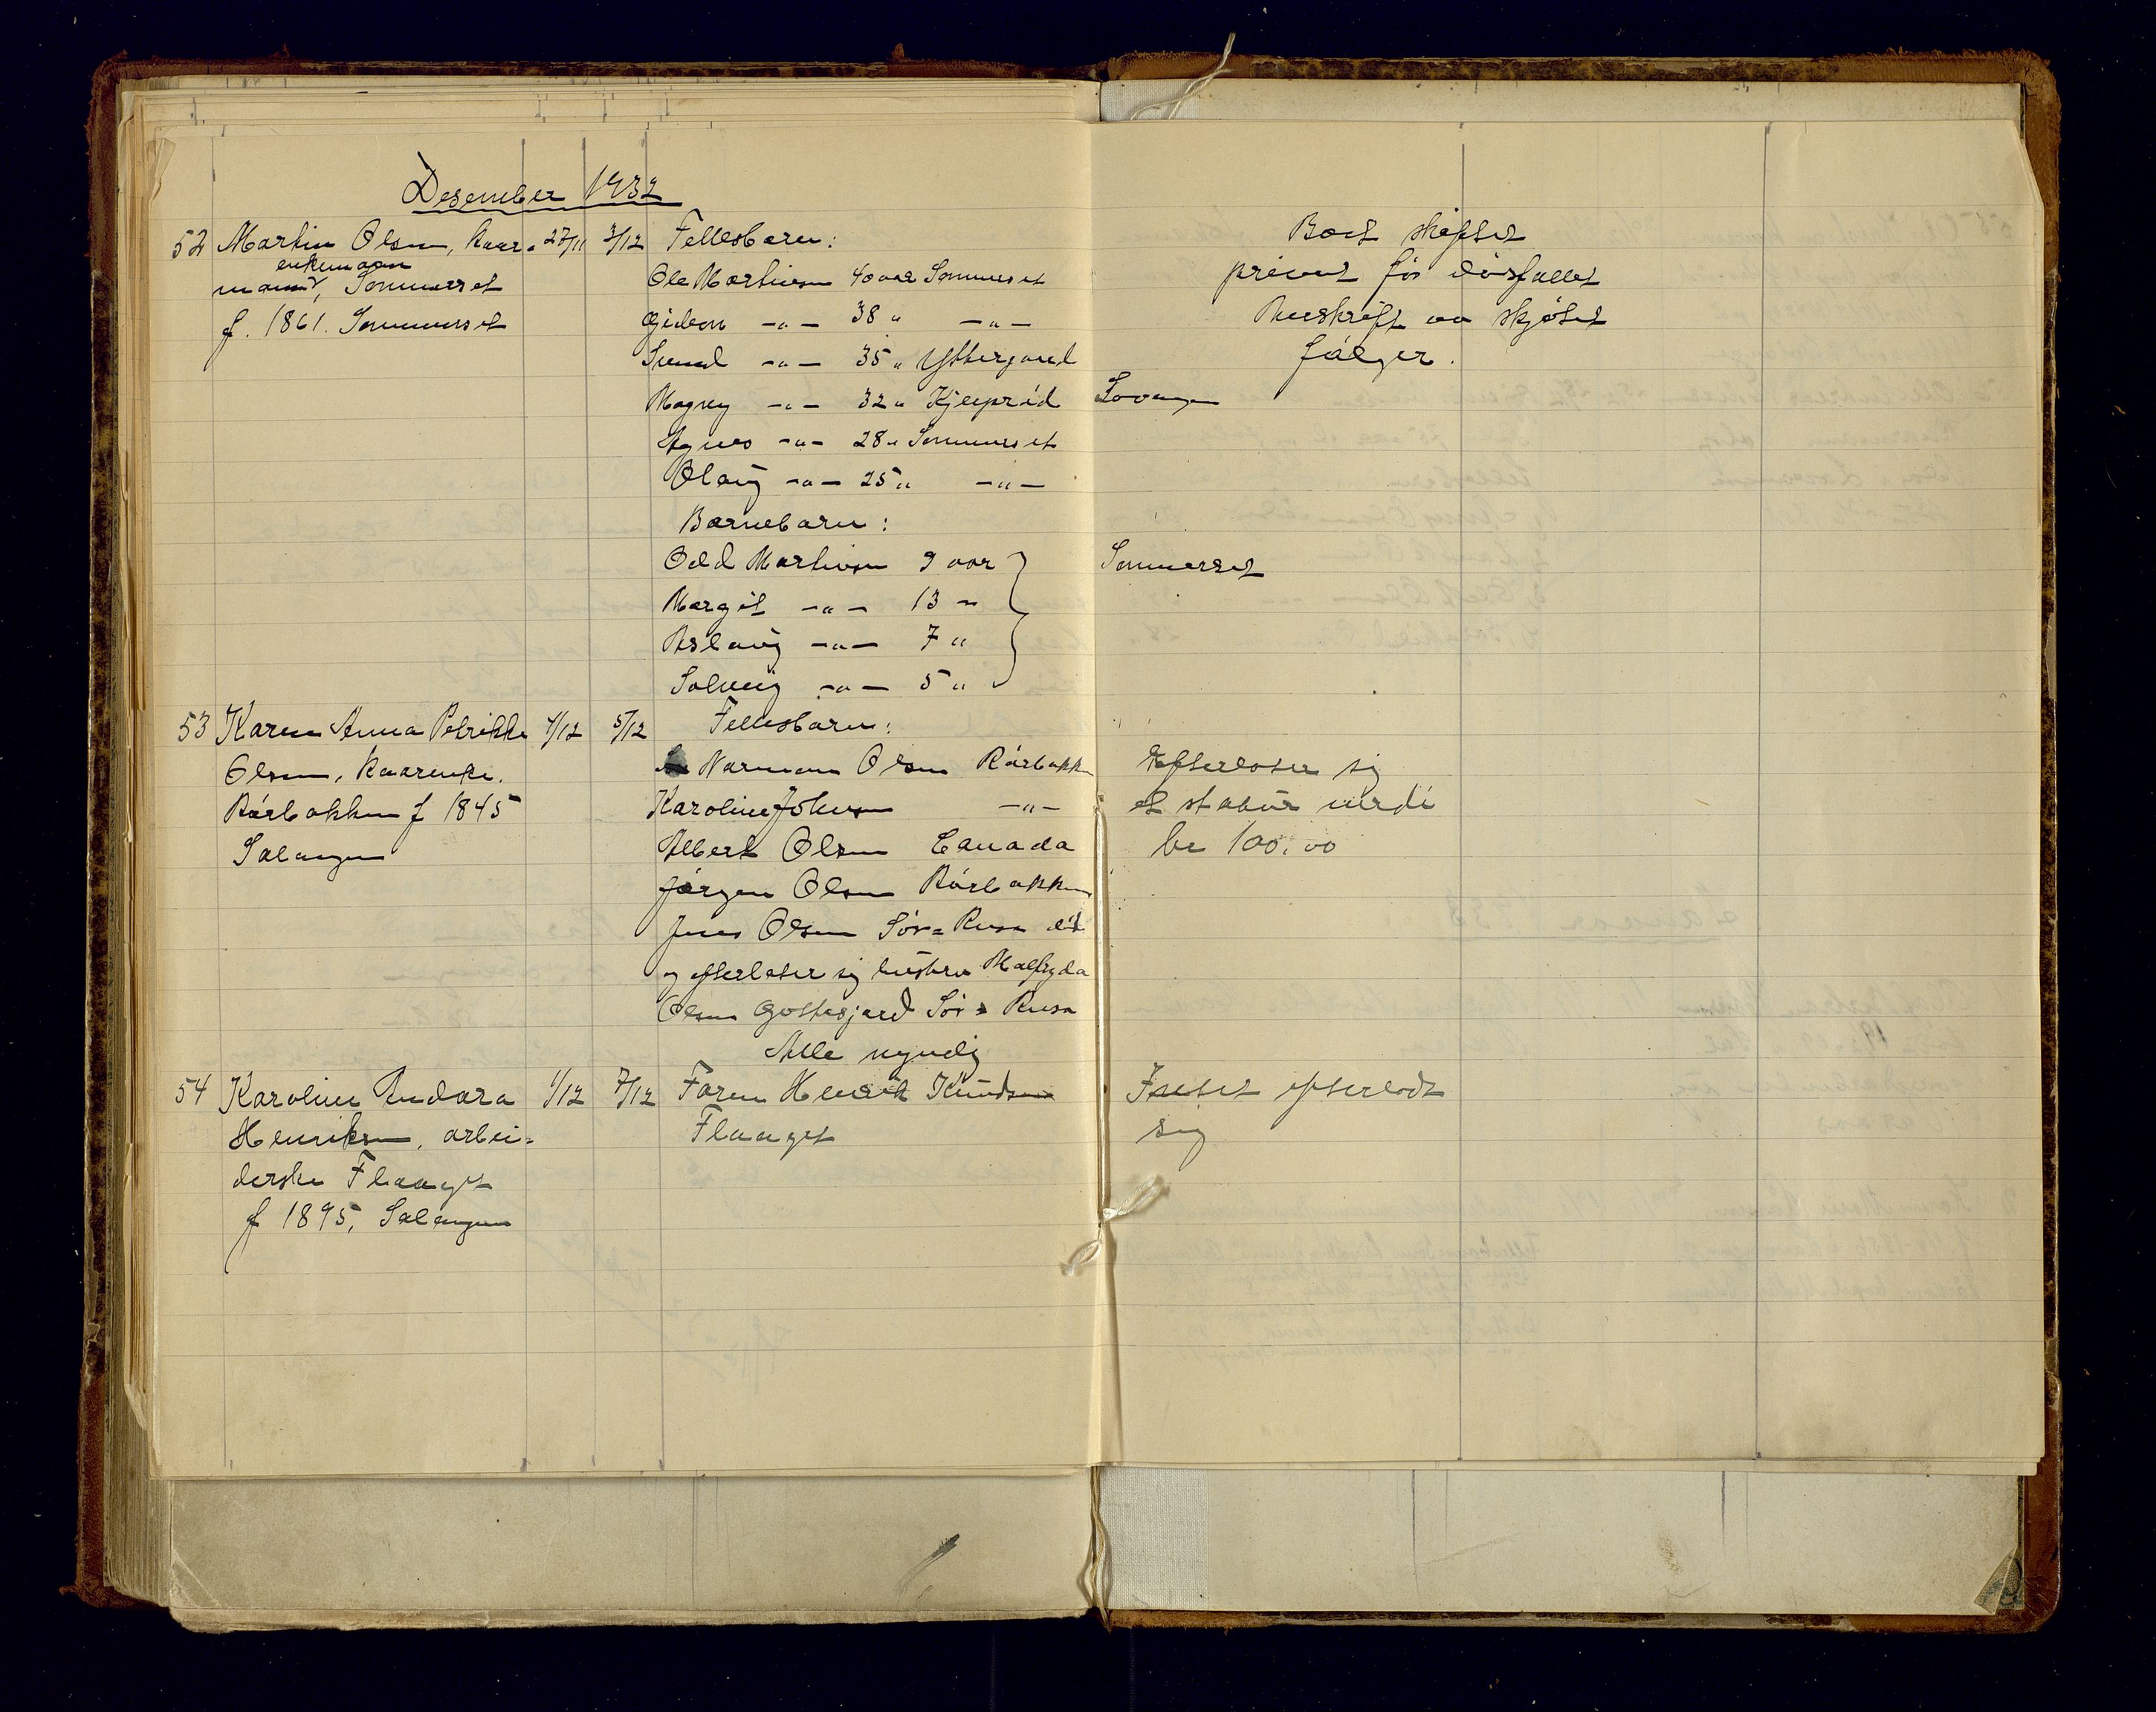 Desember 1932
52 Martin Olsen, kaar- 27/11 3/12 Fellesbarn:
enkemann
mann, Sommerset
f. 1861. Sommerset
Ole Martinsen 40 aar Sommerset
Gideon -"- 38 " -"-
Svend -"- 35 " Yttergaard
Magny -"- 32 " Lavangen
Agnes -"- 28 " Sommerset
Olaug -"- 25 " -"-
Barnebarn:
Odd Martinsen 9 aar } Sommerset
Margit -"- 13 "
Aslaug -"- 7 "
Solveig -"- 5 "
Boet skiftet
privat før dødsfallet
Avskrift av skjøtet
følger.
53 Karen Anna Petrikke 4/12 5/12 Fellesbarn:
Olsen, kaarenke.
Rørbakken f 1845
Salangen
Normann Olsen Rørbakken
Karoline Johnsen -"-
Albert Olsen Canada
Jørgen Olsen Rørbakken
Jens Olsen Sør=Rusa død
og efterlater sig hustru Malfryda
Olsen Sør=Rusa
Alle myndig
Efterlater sig
et stabur verdi
kr 100.00
54 Karoline Andora 1/12 7/12 Faren Henrik Knudsen
Henriksen, arbei=
derske Flaaget
f 1895, Salangen
Flaaget
Intet efterlodt
sig